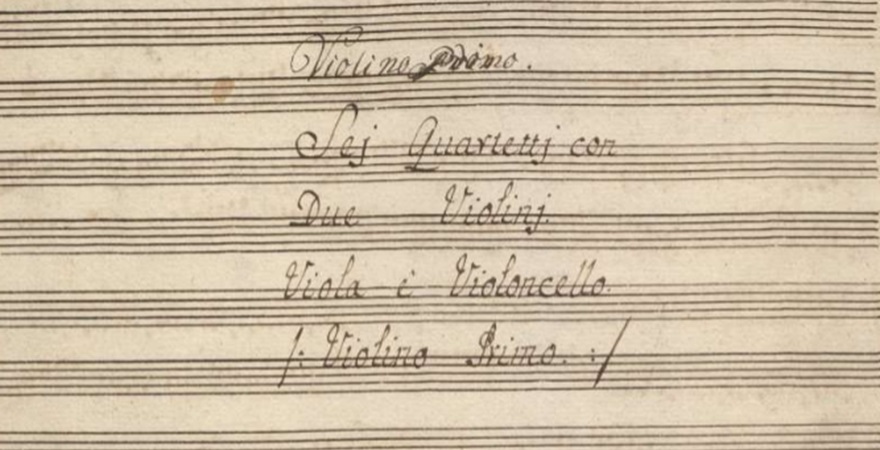 Violino Primo.
Sej Quartettj con
Due Violinj.
Viola è Violoncello.
/: Violino Primo. :/